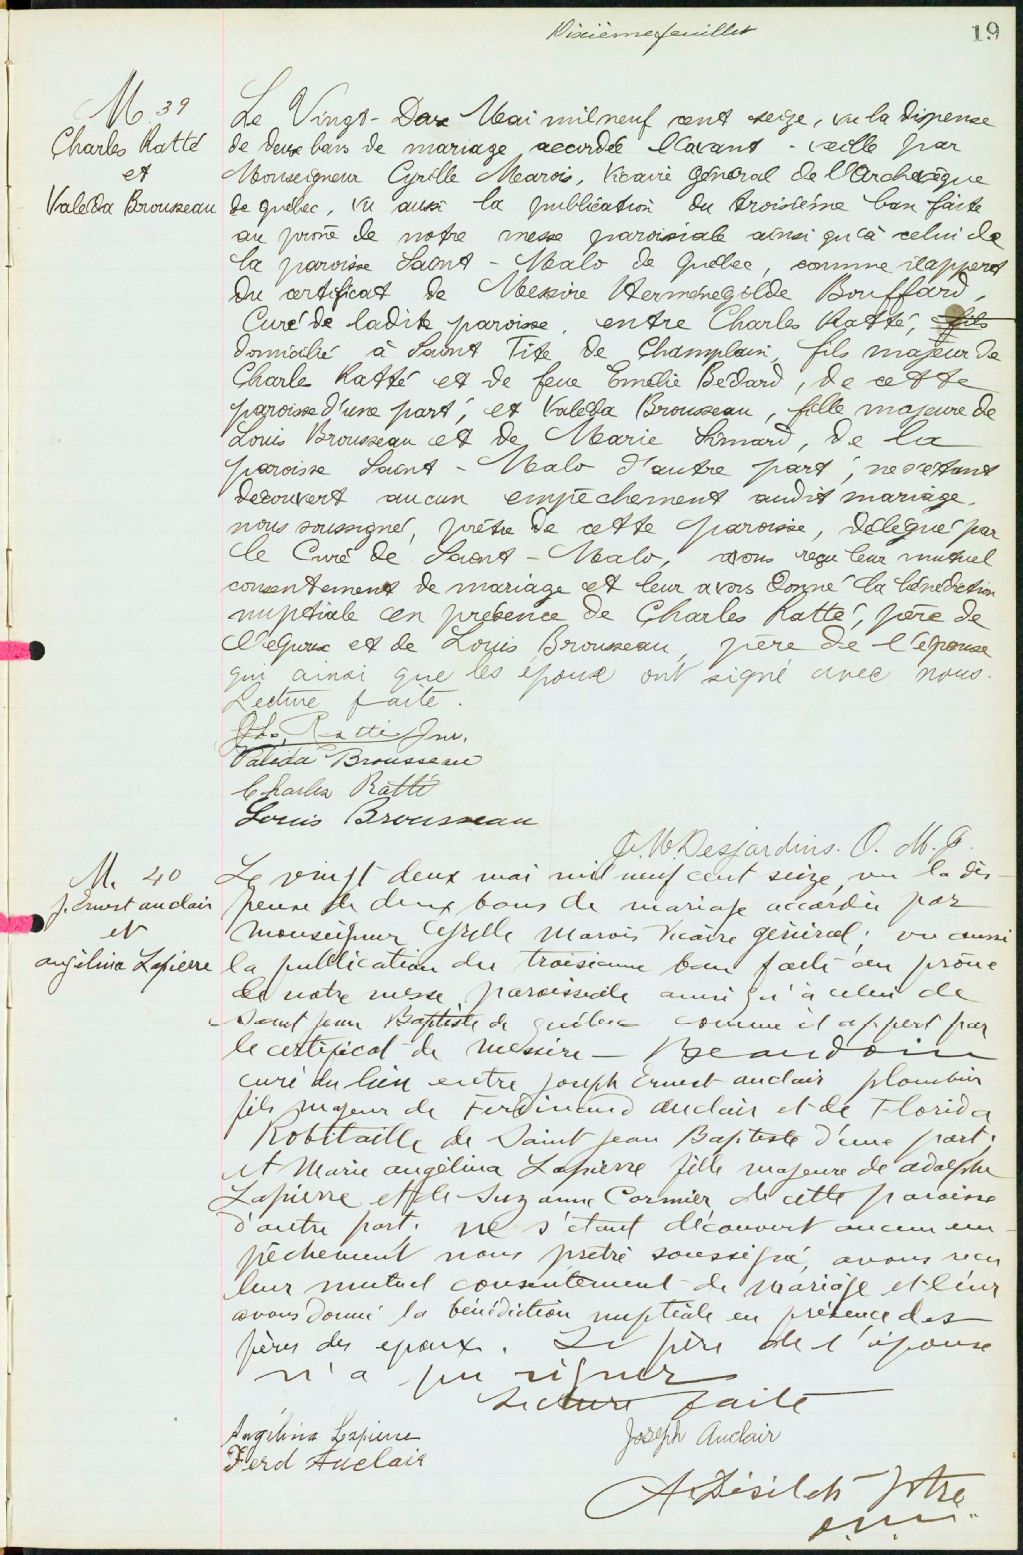 Dixième feuillet
19
M. 39
Charles Ratté
et
Valéda Brousseau
Le Vingt-Deux Mai mil neuf cent seize, vu la dispense
de deux bans de mariage accordée l'avant-veille par
Monseigneur Cyrille Marois, Vicaire général de l'Archevêque
de Québec, vu aussi la publication du troisième ban faite
au prône de notre messe paroissiale ainsi qu'à celui de
la paroisse Saint-Malo de Québec, comme il appert
du certificat de Messire Herménégilde Bouffard,
Curé de ladite paroisse, entre Charles Ratté, fils
domicilié à Saint Tite de Champlain, fils majeur de
Charles Ratté et de feue Emélie Bédard, de cette
paroisse d'une part; et Valéda Brousseau, fille majeure de
Louis Brousseau et de Marie Simard, de la
paroisse Saint-Malo d'autre part; ne s'étant
découvert aucun empêchement audit mariage,
nous soussigné, prêtre de cette paroisse, délégué par
le Curé de Saint-Malo, avons reçu leur mutuel
consentement de mariage et leur avons donné la bénédiction
nuptiale en présence de Charles Ratté, père de
l'époux et de Louis Brousseau, père de l'épouse
qui ainsi que les époux ont signé avec nous.
Lecture faite.
Chs. Ratté Jnr.
Valéda Brousseau
Charles Ratté
Louis Brousseau
Desjardins. O. M. I.
M. 40
J. Ernest auclair
et
angélina Lapierre
Le vingt deux mai mil neuf cent seize, vu la dis-
pense de deux bans de mariage accordée par
Monseigneur Cyrille Marois Vicaire général; vu aussi
la publication du troisième ban faite au prône
de notre messe paroissiale ainsi qu'à celui de
Saint Jean Baptiste de québec comme il appert par
le certificat de Messire — Beaudoin
curé du lieu entre Joseph Ernest auclair plombier
fils majeur de Ferdinand auclair et de Florida
Robitaille de Saint Jean Baptiste d'une part;
et Marie angélina Lapierre fille majeure de adolphe
Lapierre et de Suzanne Cormier, de cette paroisse
d'autre part. ne s'étant découvert aucun em-
pêchement nous prêtre soussigné, avons reçu
leur mutuel consentement de mariage et leur
avons donné la bénédiction nuptiale en présence des
pères des époux. Le père de l'épouse
n'a pu signer
Lecture faite
Angélina Lapierre
Joseph Auclair
Ferd Auclair
A. Désilets Ptre
o.m.i.